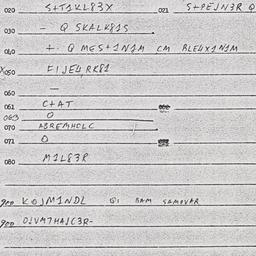 020 S+T1KL83X 021 S+PEJN3R Q
030 - Q SKALK81S
040 +. Q MES+1N1M CM BLE4X1N1M
050 FIJE4RK81
060 —
061 C+AT
063 O
070 ABREMHOLC
071 O
080 M1L83R
900 KOJM1NDL QI BAM SAMOVAR
900